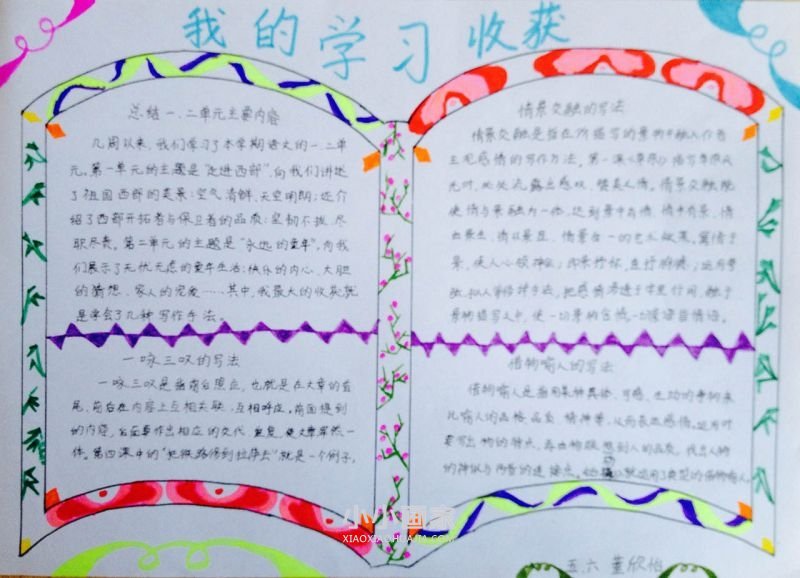 我的学习收获
总结一、二单元主要内容
几周以来,我们学习了本学期语文的一、二单
元。第一单元的主题是“走进西部”,向我们讲述
了祖国西部的美景:空气清鲜、天空明朗;还介
绍了西部开拓者与保卫者的品质:坚韧不拔、尽
职尽责。第二单元的主题是“永远的童年”,向我
们展示了无忧无虑的童年生活:快乐的内心、大胆
的猜想、家人的宠爱……其中,我最大的收获就
是学会了几种写作手法。
一咏三叹的写法
一咏三叹是指前后照应,也就是在文章的首
尾,前后在内容上互相关联、互相呼应。前面提到
的内容,后面要作出相应的交代、重复,使文章浑然一
体。第四课中的“把铁路修到拉萨去”就是一个例子。
情景交融的写法
情景交融是指在所描写的景物中融入作者
主观感情的写作方法。第一课《草原》描写草原风
光时,处处流露出感叹、赞美人情。情景交融能
使情与景融为一体,达到景中有情、情中有景、情
由景生、情以景显、情景合一的艺术效果。寓情于
景,使人心领神会;
把感情渗透于字里行间,融于
景物描写之中,使一切景物含情,一切景语皆情语。
借物喻人的写法
借物喻人是指用某种具体、可感、生动的事物来
比喻人的品格、品质、精神等,从而表达感情。运用时
要写出物的特点,再由物联想到人的品质,找出人物
的神似与两者的连接点。
五.六 董欣怡
小小画家
XIAOXIAOHUAJM.COM